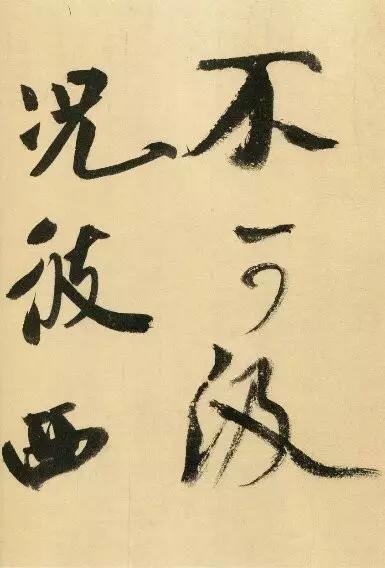 不可汲
况彼西